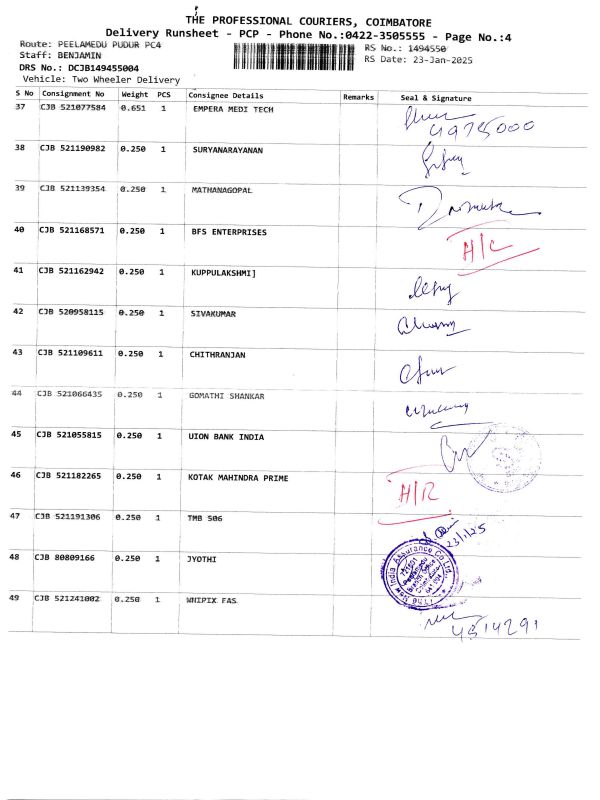 THE PROFESSIONAL COURIERS, COIMBATORE
Delivery Runsheet - PCP - Phone No.:0422-3505555 - Page No.:4
Route: PEELAMEDU PUDUR PC4
RS No.: 1494550
Staff: BENJAMIN
RS Date: 23-Jan-2025
DRS No.: DCJB149455004
Vehicle: Two Wheeler Delivery
S No Consignment No Weight PCS Consignee Details Remarks Seal & Signature
37 CJB 521077584 0.651 1 EMPERA MEDI TECH
4975000
38 CJB 521190982 0.250 1 SURYANARAYANAN
39 CJB 521139354 0.250 1 MATHANAGOPAL
40 CJB 521168571 0.250 1 BFS ENTERPRISES H/C
41 CJB 521162942 0.250 1 KUPPULAKSHMI]
42 CJB 520958115 0.250 1 SIVAKUMAR
43 CJB 521109611 0.250 1 CHITHRANJAN
44 CJB 521066435 0.250 1 GOMATHI SHANKAR
45 CJB 521055815 0.250 1 UION BANK INDIA
46 CJB 521182265 0.250 1 KOTAK MAHINDRA PRIME H/R
47 CJB 521191306 0.250 1 TMB 506
23/1/25
48 CJB 80809166 0.250 1 JYOTHI
New India Assurance Co Ltd
49 CJB 521241002 0.250 1 WHIPIX FAS.
4514291